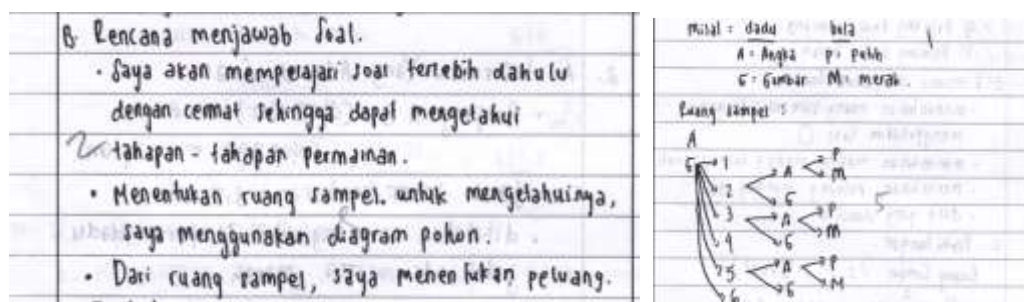 B. Rencana menjawab soal.
• Saya akan mempelajari soal tertebih dahulu
dengan cermat sehingga dapat mengetahui
tahapan - tahapan permainan.
• Menentukan ruang sampel. untuk mengetahuinya,
saya menggunakan diagram pohon.
• Dari ruang sampel, saya menentukan peluang.
misal : dadu bola
A = Angka P = putih
G = Gambar M = merah.
Ruang sampel :
A
G 1 A P
M
2 G
3 A P
M
4 G
5 A P
M
6 G